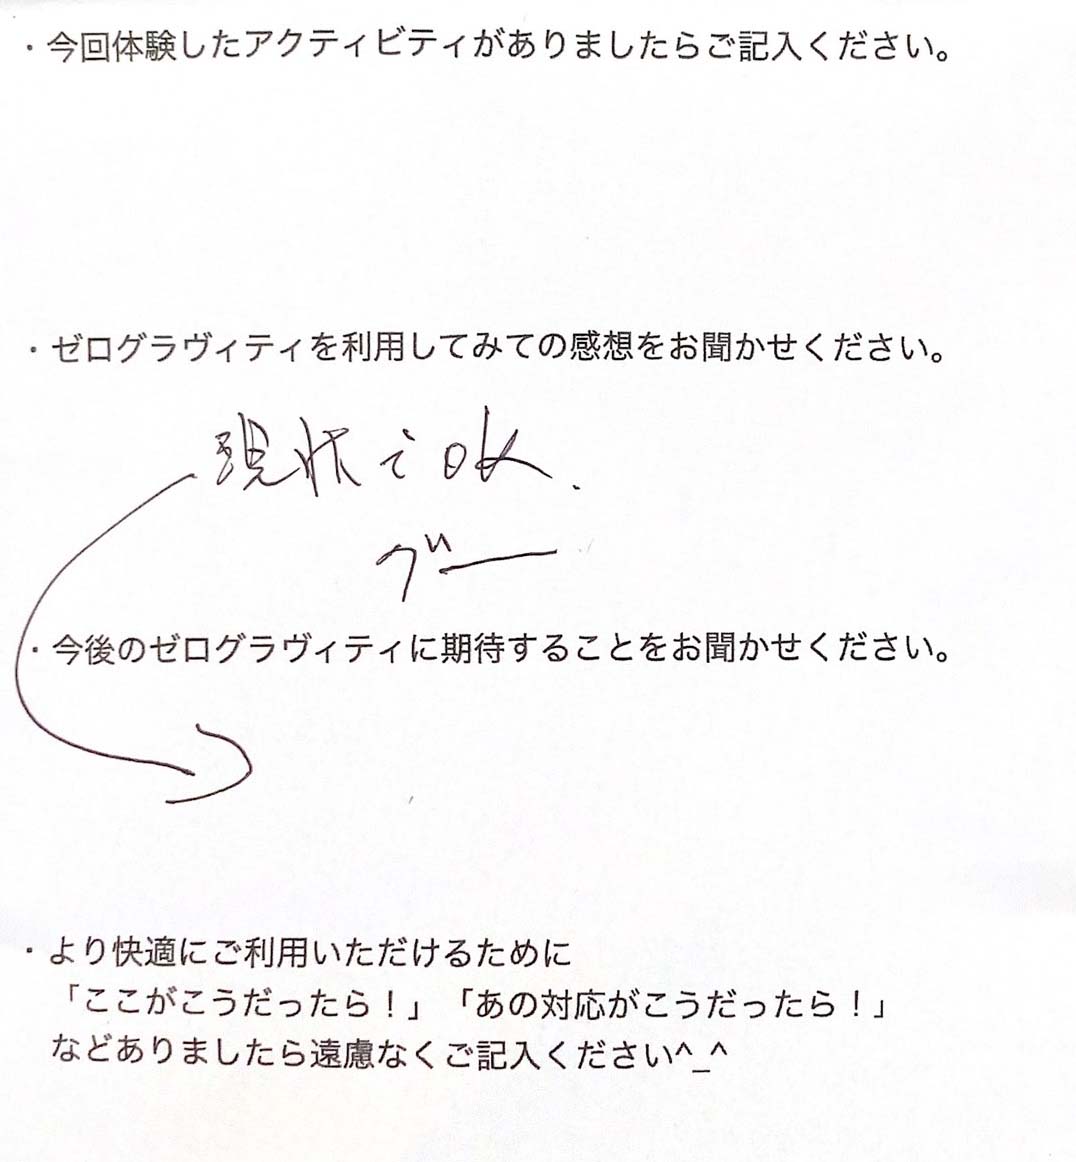 ・今回体験したアクティビティがありましたらご記入ください。
・ゼログラヴィティを利用してみての感想をお聞かせください。
現状でOK.
グー
・今後のゼログラヴィティに期待することをお聞かせください。
・より快適にご利用いただけるために
「ここがこうだったら！」「あの対応がこうだったら！」
などありましたら遠慮なくご記入ください^_^